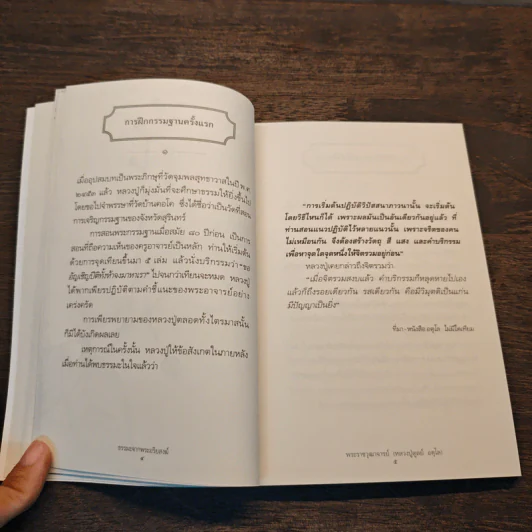 การฝึกกรรมฐานครั้งแรก
๑
เมื่ออุปสมบทเป็นพระภิกษุที่วัดจุมพลสุทธาวาสในปี พ.ศ.
แล้ว หลวงปู่ก็มุ่งมั่นที่จะศึกษาธรรมให้ยิ่งขึ้นไป
โดยขอไปจำพรรษาที่วัดบ้านคอโค ซึ่งได้ชื่อว่าเป็นวัดที่สอน
การเจริญกรรมฐานของจังหวัดสุรินทร์
การสอนพระกรรมฐานเมื่อสมัย ๘๐ ปีก่อน เป็นการ
สอนที่ถือความเห็นของครูอาจารย์เป็นหลัก ท่านให้เริ่มต้น
ด้วยการจุดเทียนขึ้นมา ๕ เล่ม แล้วนั่งบริกรรมว่า “ขอ
อัญเชิญปีติทั้งห้าจงมาหาเรา” ไปจนกว่าเทียนจะหมด หลวงปู่
ได้พากเพียรปฏิบัติตามคำชี้แนะของพระอาจารย์อย่าง
เคร่งครัด
การเพียรพยายามของหลวงปู่ตลอดทั้งไตรมาสนั้น
ก็มิได้บังเกิดผลเลย
เหตุการณ์ในครั้งนั้น หลวงปู่ให้ข้อสังเกตในภายหลัง
เมื่อท่านได้พบธรรมะในใจแล้วว่า
ธรรมะจากพระอริยสงฆ์
๔
“การเริ่มต้นปฏิบัติวิปัสสนาภาวนานั้น จะเริ่มต้น
โดยวิธีไหนก็ได้ เพราะผลมันเป็นอันเดียวกันอยู่แล้ว ที่
ท่านสอนแนวปฏิบัติไว้หลายแนวนั้น เพราะจริตของคน
ไม่เหมือนกัน จึงต้องสร้างวัตถุ สี แสง และคำบริกรรม
เพื่อหาจุดใดจุดหนึ่งให้จิตรวมอยู่ก่อน”
หลวงปู่เคยกล่าวถึงจิตรวมว่า
“เมื่อจิตรวมสงบแล้ว คำบริกรรมก็หลุดหายไปเอง
แล้วก็ถึงรอยเดียวกัน รสเดียวกัน คือมีวิมุตติเป็นแก่น
มีปัญญาเป็นยิ่ง”
ที่มา : หนังสือ อตุโล ไม่มีใดเทียม
พระราชวุฒาจารย์ (หลวงปู่ดูลย์ อตุโล)
๕